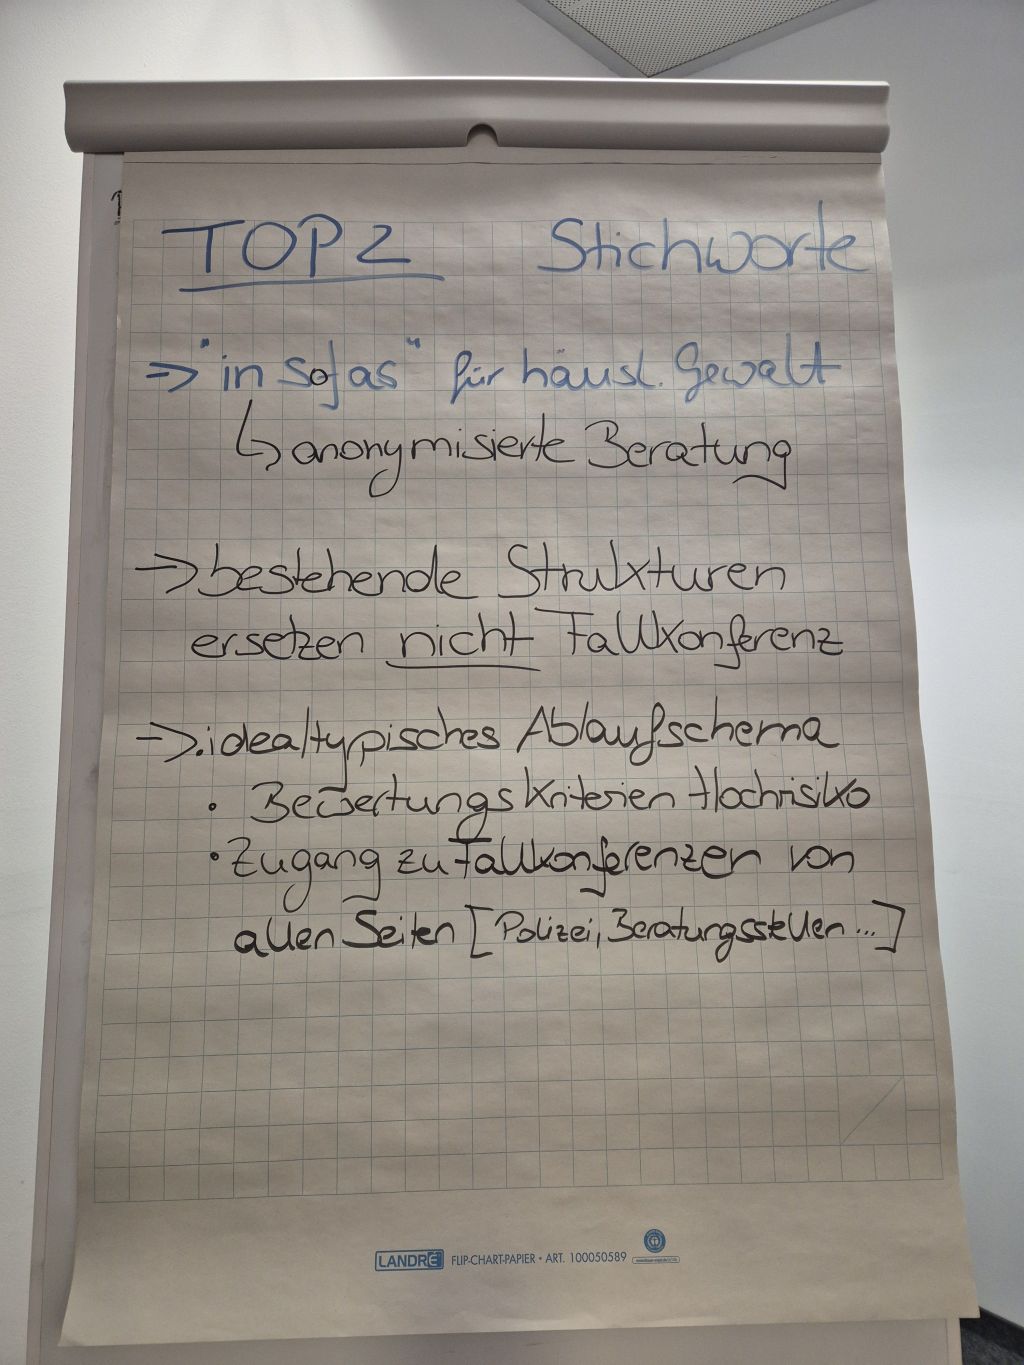 TOP 2 Stichworte
=> "insofas" für häusl. Gewalt
↳ anonymisierte Beratung
-> bestehende Strukturen
ersetzen nicht Fallkonferenz
-> . idealtypisches Ablaufschema
• Bewertungskriterien Hochrisiko
• Zugang zu Fallkonferenzen von
allen Seiten [Polizei, Beratungsstellen ...]
LANDRÉ FLIP-CHART-PAPIER • ART. 100050589